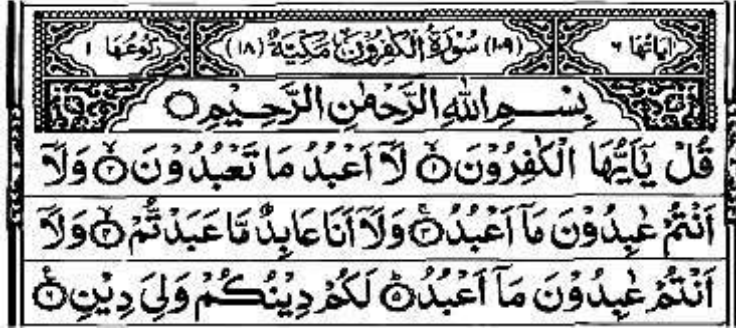 اٰيَاتُهَا ٦ (١٠٩) سُوْرَةُ الْكٰفِرُوْنَ مَكِّيَّةٌ (١٨) رُكُوْعُهَا ١
بِسْمِ اللهِ الرَّحْمٰنِ الرَّحِيْمِ ۝
قُلْ يٰۤاَيُّهَا الْكٰفِرُوْنَ ۝١ لَاۤ اَعْبُدُ مَا تَعْبُدُوْنَ ۝٢ وَلَاۤ
اَنْتُمْ عٰبِدُوْنَ مَاۤ اَعْبُدُ ۝٣ وَلَاۤ اَنَا عَابِدٌ مَّا عَبَدْتُّمْ ۝٤ وَلَاۤ
اَنْتُمْ عٰبِدُوْنَ مَاۤ اَعْبُدُ ۝٥ لَكُمْ دِيْنُكُمْ وَلِيَ دِيْنِ ۝٦